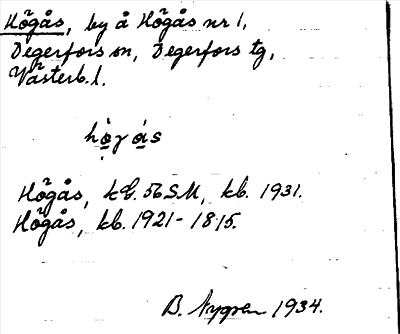 Högås, by å Högås nr 1,
Degerfors sn, Degerfors tg,
Västerb. l.
Högås, kE. 56 SM, kb. 1931.
Högås, kb. 1921-1815.
B. Nygren 1934.